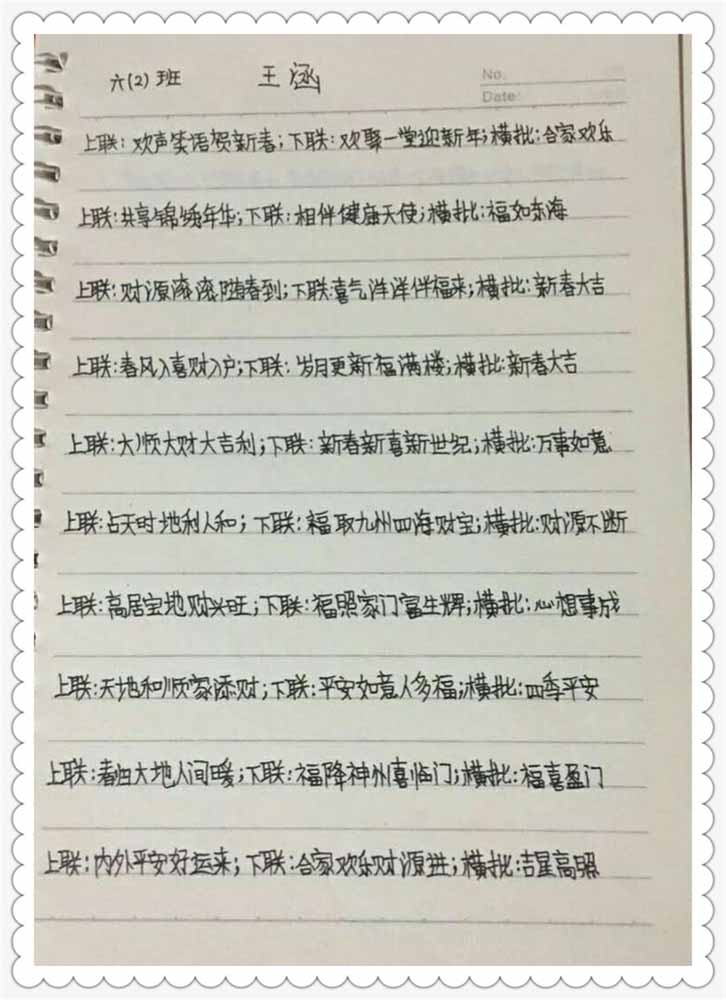 六(2)班 王涵
No.
Date:
上联:欢声笑语贺新春;下联:欢聚一堂迎新年;横批:合家欢乐
上联:共享锦绣年华;下联:相伴健庙天使;横批:福如东海
上联:财源滚滚随春到;下联:喜气洋洋伴福来;横批:新春大吉
上联:春风入喜财入户;下联:岁月更新福满楼;横批:新春大吉
上联:大顺大财大吉利;下联:新春新喜新世纪;横批:万事如意
上联:占天时地利人和;下联:福取九州四海财宝;横批:财源不断
上联:高居宝地财兴旺;下联:福照家门富生辉;横批:心想事成
上联:天地和顺家添财;下联:平安如意人多福;横批:四季平安
上联:春归大地人间暖;下联:福降神州喜临门;横批:福喜盈门
上联:内外平安好运来;下联:合家欢乐财源进;横批:吉星高照